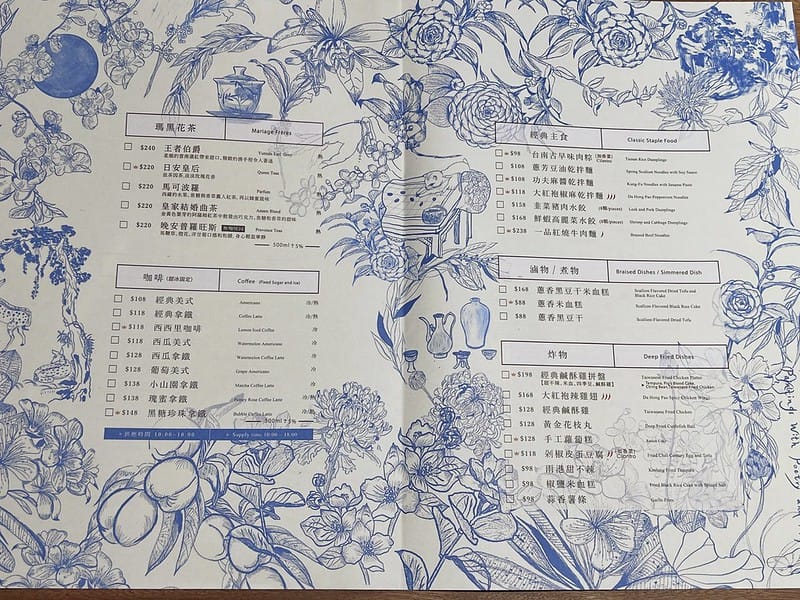 瑪黑花茶 Mariage Frères
$240 王者伯爵 Yunnan Earl Grey 熱
$220 日安皇后 Queen Tea 熱
$220 馬可波羅 Parfum 熱
$220 皇家結婚曲茶 Amore Blend 熱
$220 晚安普羅旺斯 Provence Tea 熱
500ml±5%
咖啡 (甜冰固定) Coffee (Fixed Sugar and Ice)
$108 經典美式 Americano 冷/熱
$118 經典拿鐵 Coffee Latte 冷/熱
$118 西西里咖啡 Lemon Iced Coffee 冷
$118 西瓜美式 Watermelon Americano 冷
$128 西瓜拿鐵 Watermelon Coffee Latte 冷
$128 葡萄美式 Grape Americano 冷
$138 小山園拿鐵 Matcha Coffee Latte 冷/熱
$138 瑰蜜拿鐵 Honey Rose Coffee Latte 冷/熱
$148 黑糖珍珠拿鐵 Bubble Coffee Latte 冷/熱
500ml±5%
供應時間 10:00-18:00 Supply time: 10:00 - 18:00
經典主食 Classic Staple Food
$98 台南古早味肉粽 (無香菜) Cilantro Tainan Rice Dumplings
$108 蔥芳豆油乾拌麵 Spring Scallion Noodles with Soy Sauce
$108 功夫麻醬乾拌麵 Kung-Fu Noodles with Sesame Paste
$118 大紅袍椒麻乾拌麵 Da Hong Pao Peppercorn Noodles
$158 韭菜豬肉水餃 Leek and Pork Dumplings
$168 鮮蝦高麗菜水餃 Shrimp and Cabbage Dumplings
$238 一品紅燒牛肉麵 Braised Beef Noodles
滷物 / 煮物 Braised Dishes / Simmered Dish
$168 蔥香黑豆干米血糕 Scallion-Flavored Dried Tofu and
Black Rice Cake
$88 蔥香米血糕 Scallion-Flavored Black Rice Cake
$88 蔥香黑豆干 Scallion-Flavored Dried Tofu
炸物 Deep Fried Dishes
$198 經典鹹酥雞拼盤 Taiwanese Fried Chicken Platter
(甜不辣, 米血, 四季豆, 鹹酥雞)
$168 大紅袍辣雞翅 Da Hong Pao Spicy Chicken Wings
$128 經典鹹酥雞 Taiwanese Fried Chicken
$128 黃金花枝丸 Deep Fried Cuttlefish Ball
$128 手工蘿蔔糕
$118 剁椒皮蛋豆腐 Cilantro
$98 雨港甜不辣 Keelung Fried Tempura
$98 椒鹽米血糕
$98 蒜香薯條 Garlic Fries